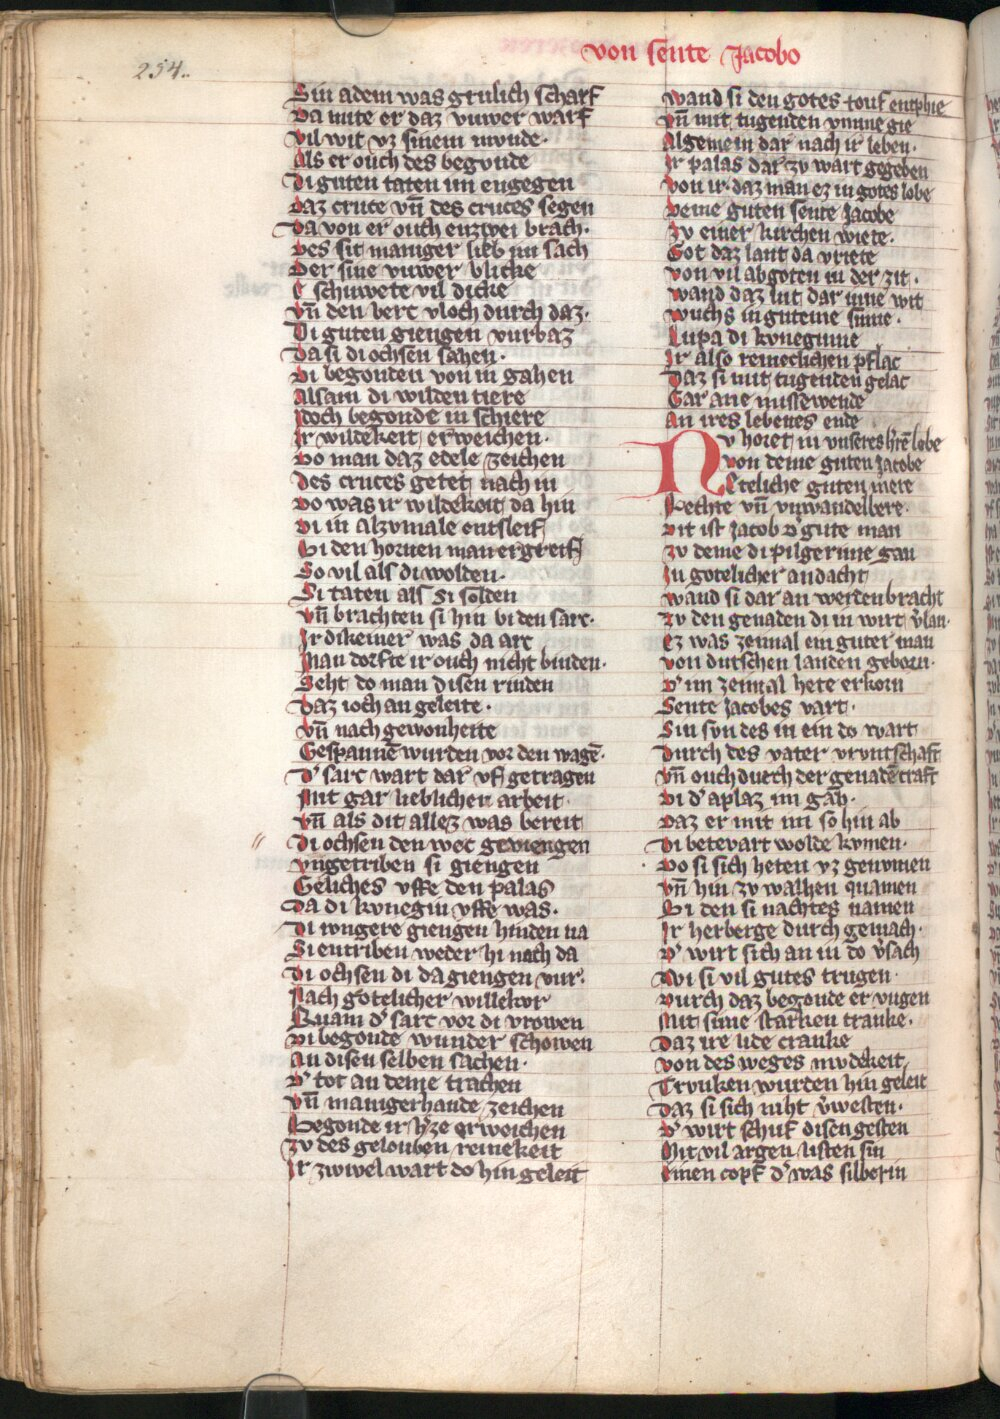 254.
von sente Jacobo
Sin adem was grulich scharf
Da mite er daz vuwer warf
Vil wit vz sinem munde.
Als er ouch des begonde
Di guten taten im engegen
Daz cruce vn̄ des cruces segen
Da von er ouch enzwei brach.
Des sit maniger lieb im sach
Der sine vuwer blicke
E schuwete vil dicke
Vn̄ den berc vloch durch daz.
Di guten giengen vurbaz
Da si di ochsen sahen.
Di begonden von in gahen
Alsam di wilden tiere
Idoch begonde in schiere
Ir wildekeit erweichen.
Do man daz edele zeichen
Des cruces getet nach in
Do was ir wildekeit da hin
Di in alzvmale entsleif
Bi den hornen man ergreif
So vil als di wolden.
Si taten als si solden
Vn̄ brachten si hin bi den sarc.
Ir dikeiner was da arc
Man dorfte ir ouch nicht binden.
Seht do man disen rinden
Daz ioch an geleite.
Vn̄ nach gewonheite
Gespannē wurden vor den wagē.
D' sarc wart dar vf getragen
Mit gar lieblicher arbeit
Vn̄ als dit allez was bereit
Di ochsen den wec geviengen
Vngetriben si giengen
Geliches vffe den palas
Da di kvnegin vffe was.
Di iungere giengen hinden na
Si entriben weder hi noch da
Di ochsen di da giengen vur.
Nach gotelicher willekvr
Quam d' sarc vor di vrowen
Di begonde wunder schowen
An disen selben sachen.
D' tot an deme trachen
Vn̄ manigerhande zeichen
Begonde ir h'ze erweichen
Zv des gelouben reinekeit
Ir zwivel wart do hin geleit
Wand si den gotes touf entphie
Vn̄ mit tugenden vmme gie
Algemein dar nach ir leben.
Ir palas dar zv wart gegeben
Von ir. daz man ez in gotes lobe
Deme guten sente Jacobe
Zv einer kirchen wiete.
Got daz lant da vriete
Von vil abgoten in der zit.
Wand daz lut dar inne wit
Wuchs in guteme sinne.
Lupa di kvneginne
Ir also reineclichen pflac
Daz si mit tugenden gelac
Gar ane missewende
An ires lebenes ende
Nv horet in vnseres h're lobe
Von deme guten Jacobe
Eteliche guten mere
Rechte vn̄ vnwandelbere.
Dit ist Jacob d' gute man
Zv deme di pilgerime gan
In gotelicher andacht
Wand si dar an werden bracht
Zv den genaden di in wirt v'lan.
Ez was zeimal ein guter man
Von dutschen landen geborn.
D' im zeimal hete erkorn
Sente Jacobes vart.
Sin svn des in ein do wart
Durch des vater vruntschaft
Vn̄ ouch durch der genadē craft
Di d' aplaz im gab.
Daz er mit im so hin ab
Di betevart wolde kvmen.
Do si sich heten vz genvmen
Vn̄ hin zv walhen quamen
Bi den si nachtes namen
Ir herberge durch gemach.
D' wirt sich an in do v'sach
Wi si vil gutes trugen.
Durch daz begonde er vugen
Mit sime starken tranke.
Daz ire lide cranke
Von des weges mvdekeit
Trvnken wurden hin geleit
Daz si sich niht v'westen.
D' wirt schuf disen gesten
Mit vil argen listen sin
Einen copf d' was silberin